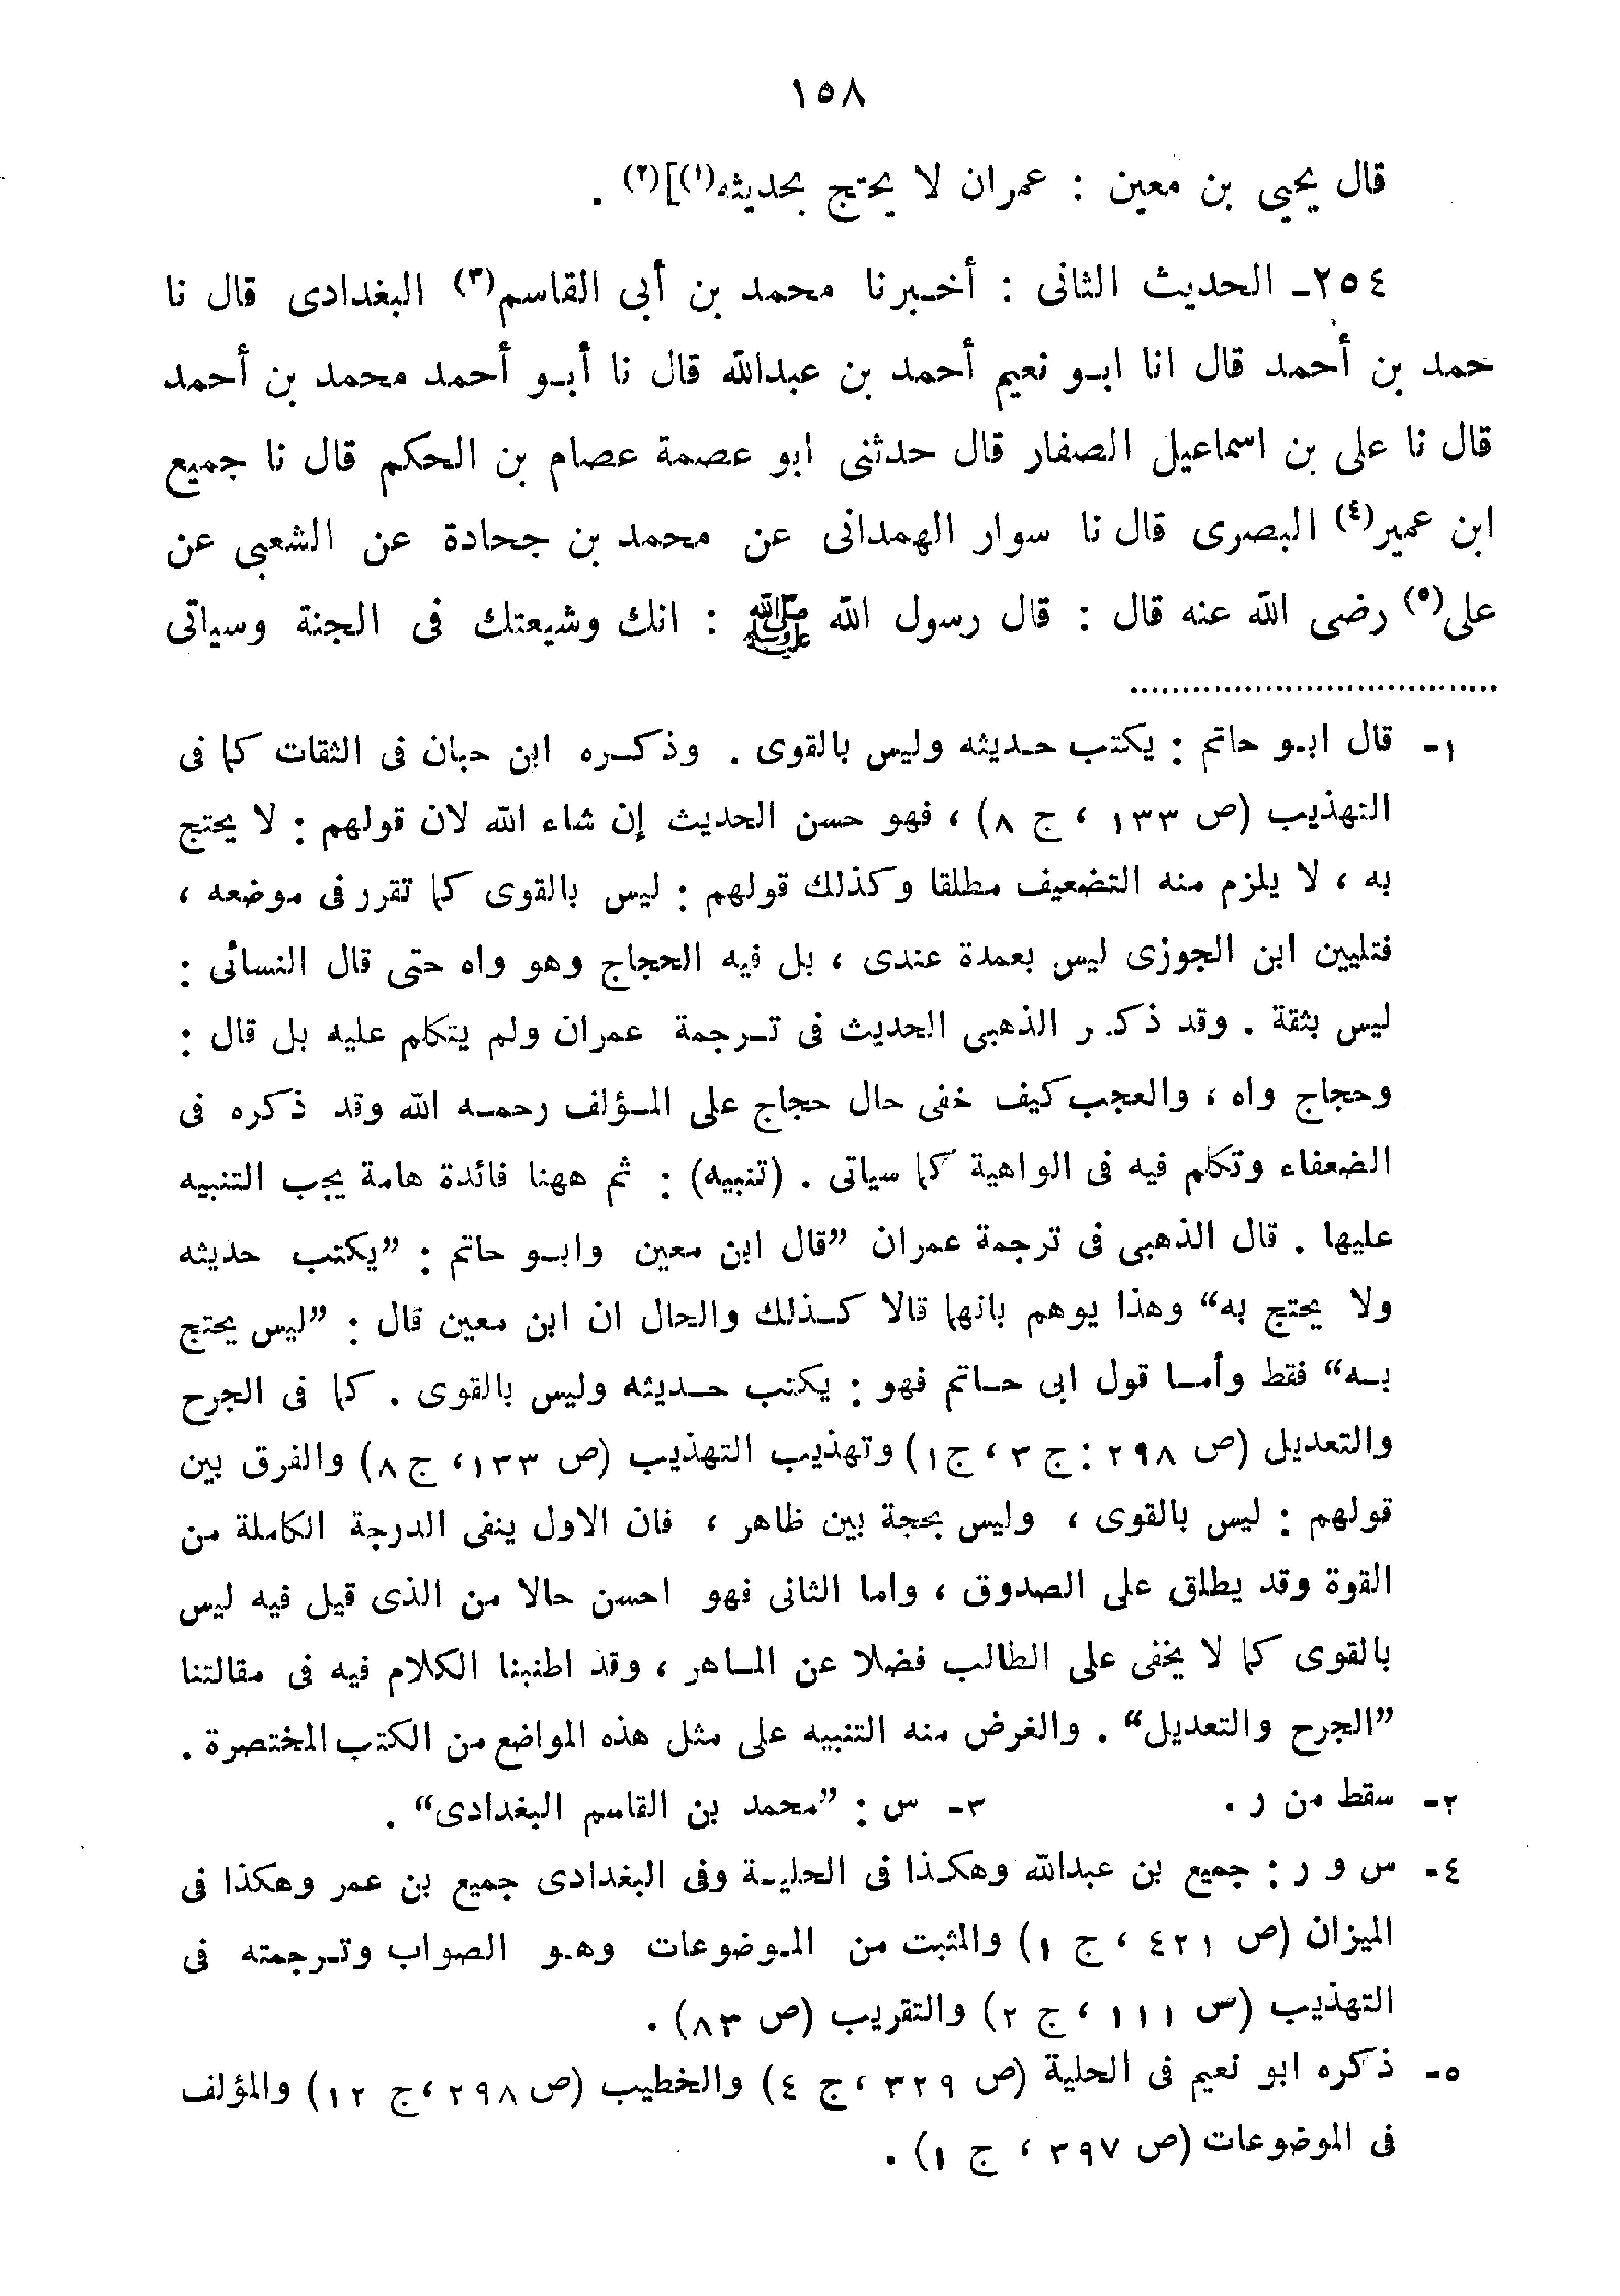 ١٥٨
قال يحيى بن معين : عمران لا يحتج بحديثه(١)](٢) .
٢٥٤ـ الحديث الثانى : أخـبرنا محمد بن أبى القاسم(٣) البغدادى قال نا
حمد بن أحمد قال انا ابـو نعيم أحمد بن عبدالله قال نا أبـو أحمد محمد بن أحمد
قال نا على بن اسماعيل الصفار قال حدثنى ابو عصمة عصام بن الحكم قال نا جميع
ابن عمير(٤) البصرى قال نا سوار الهمدانى عن محمد بن جحادة عن الشعبى عن
على(٥) رضى الله عنه قال : قال رسول الله ﷺ : انك وشيعتك فى الجنة وسياتى
١ـ قال ابـو حاتم : يكتب حـديثه وليس بالقوى . وذكـره ابن حبان فى الثقات كما فى
التهذيب (ص ١٣٣ ، ج ٨) ، فهو حسن الحديث إن شاء الله لان قولهم : لا يحتج
به ، لا يلزم منه التضعيف مطلقا وكذلك قولهم : ليس بالقوى كما تقرر فى موضعه ،
فتليين ابن الجوزى ليس بعمدة عندى ، بل فيه الحجاج وهو واه حتى قال النسائى :
ليس بثقة . وقد ذكـر الذهبى الحديث فى تـرجمة عمران ولم يتكلم عليه بل قال :
وحجاج واه ، والعجب كيف خفى حال حجاج على المـؤلف رحمـه الله وقد ذكره فى
الضعفاء وتكلم فيه فى الواهية كما سياتى . (تنبيه) : ثم ههنا فائدة هامة يجب التنبيه
عليها . قال الذهبى فى ترجمة عمران ”قال ابن معين وابـو حاتم : ”يكتب حديثه
ولا يحتج به“ وهذا يوهم بانهما قالا كـذلك والحال ان ابن معين قال : ”ليس يحتج
بـه“ فقط وأمـا قول ابى حـاتم فهو : يكتب حـديثه وليس بالقوى . كما فى الجرح
والتعديل (ص ٢٩٨ : ج ٣ ، ج١) وتهذيب التهذيب (ص ١٣٣، ج ٨) والفرق بين
قولهم : ليس بالقوى ، وليس بحجة بين ظاهر ، فان الاول ينفى الدرجة الكاملة من
القوة وقد يطلق على الصدوق ، واما الثانى فهو احسن حالا من الذى قيل فيه ليس
بالقوى كما لا يخفى على الطالب فضلا عن المـاهر ، وقد اطنبنا الكلام فيه فى مقالتنا
”الجرح والتعديل“ . والغرض منه التنبيه على مثل هذه المواضع من الكتب المختصرة .
٢ـ سقط من ر . ٣ـ س : ”محمد بن القاسم البغدادى“ .
٤ـ س و ر : جميع بن عبدالله وهكذا فى الحليـة وفى البغدادى جميع بن عمر وهكذا فى
الميزان (ص ٤٢١ ، ج ١) والمثبت من المـوضوعات وهـو الصواب وتـرجمته فى
التهذيب (ص ١١١ ، ج ٢) والتقريب (ص ٨٣) .
٥ـ ذكره ابو نعيم فى الحلية (ص ٣٢٩ ، ج ٤) والخطيب (ص ٢٩٨ ، ج ١٢) والمؤلف
فى الموضوعات (ص ٣٩٧ ، ج ١) .